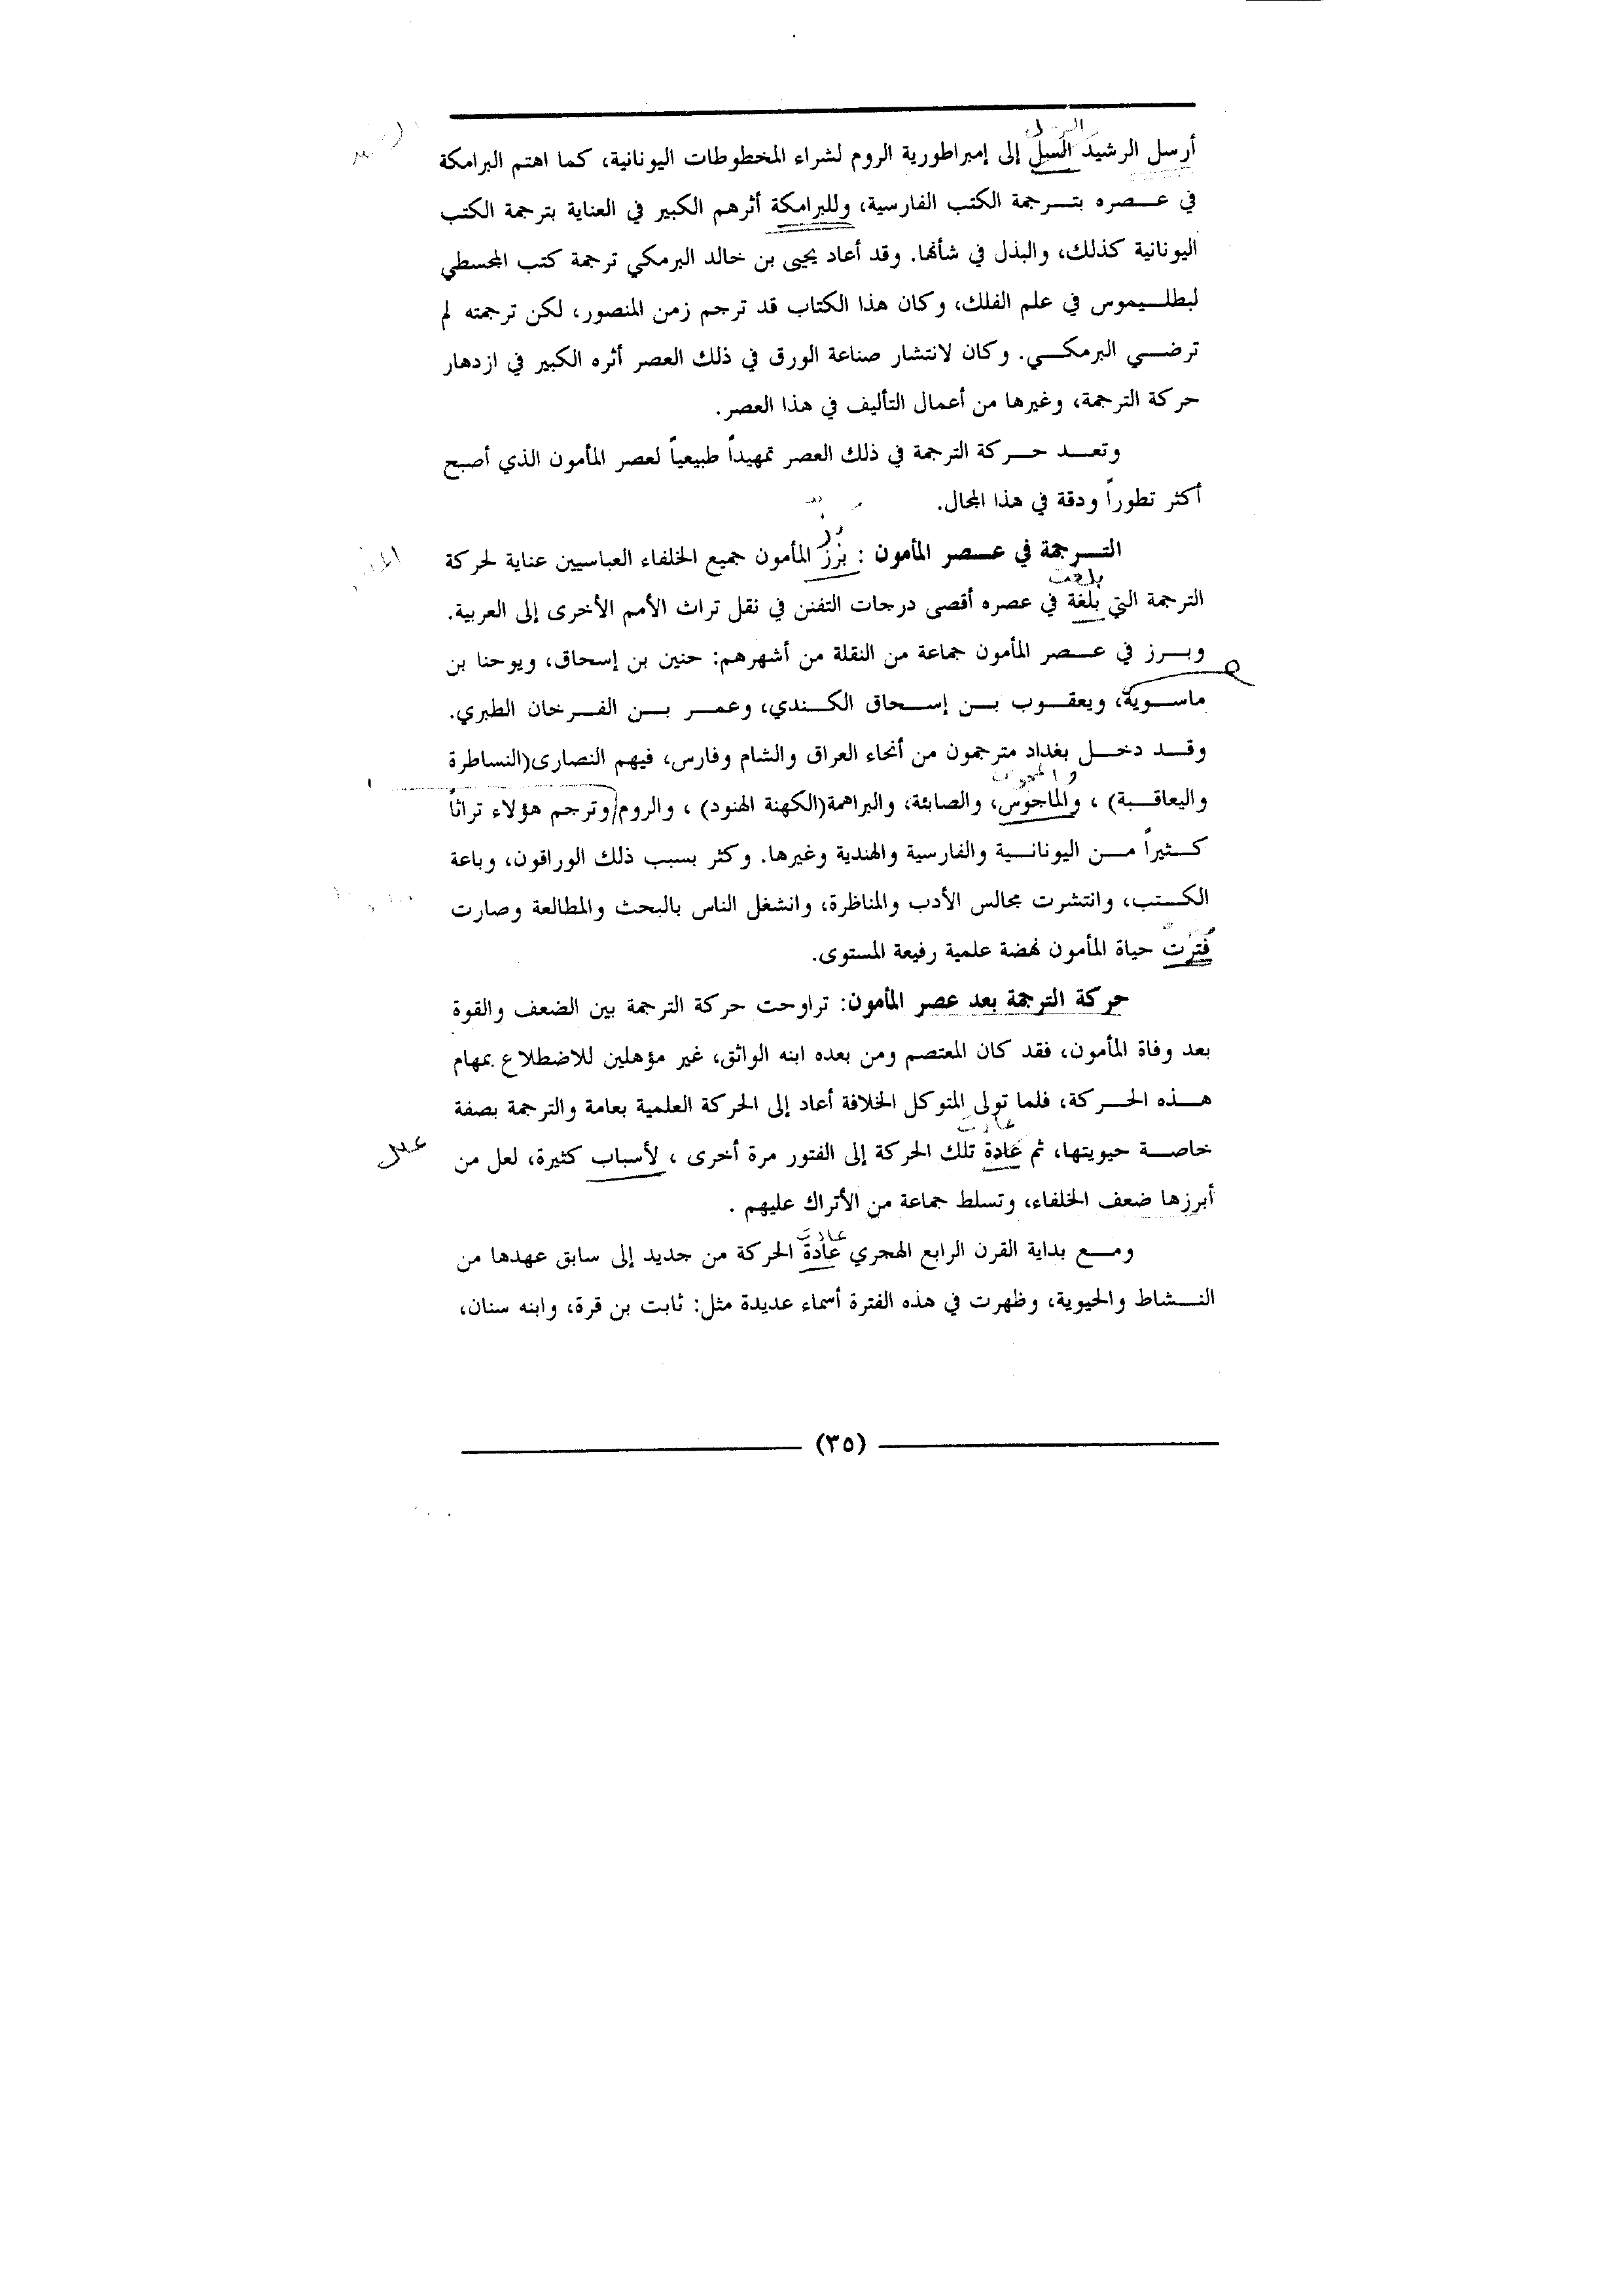 أرسل الرشيد السبل إلى إمبراطورية الروم لشراء المخطوطات اليونانية، كما اهتم البرامكة
في عصره بترجمة الكتب الفارسية، وللبرامكة أثرهم الكبير في العناية بترجمة الكتب
اليونانية كذلك، والبذل في شأنها. وقد أعاد يحيى بن خالد البرمكي ترجمة كتب المجسطي
لبطليموس في علم الفلك، وكان هذا الكتاب قد ترجم زمن المنصور، لكن ترجمته لم
ترضي البرمكي. وكان لانتشار صناعة الورق في ذلك العصر أثره الكبير في ازدهار
حركة الترجمة، وغيرها من أعمال التأليف في هذا العصر.
وتعد حركة الترجمة في ذلك العصر تمهيداً طبيعياً لعصر المأمون الذي أصبح
أكثر تطوراً ودقة في هذا المجال.
الترجمة في عصر المأمون : بزز المأمون جميع الخلفاء العباسيين عناية لحركة
بلغت
الترجمة التي بلغة في عصره أقصى درجات التفنن في نقل تراث الأمم الأخرى إلى العربية.
وبرز في عصر المأمون جماعة من النقلة من أشهرهم: حنين بن إسحاق، ويوحنا بن
ماسوية، ويعقوب بن إسحاق الكندي، وعمر بن الفرخان الطبري.
وقد دخل بغداد مترجمون من أنحاء العراق والشام وفارس، فيهم النصارى(النساطرة
واليعاقبة) ، والماجوس، والصابئة، والبراهمة(الكهنة الهنود) ، والروم/وترجم هؤلاء تراثاً
كثيراً من اليونانية والفارسية والهندية وغيرها. وكثر بسبب ذلك الوراقون، وباعة
الكتب، وانتشرت مجالس الأدب والمناظرة، وانشغل الناس بالبحث والمطالعة وصارت
فترت حياة المأمون نهضة علمية رفيعة المستوى.
حركة الترجمة بعد عصر المأمون: تراوحت حركة الترجمة بين الضعف والقوة
بعد وفاة المأمون، فقد كان المعتصم ومن بعده ابنه الواثق، غير مؤهلين للاضطلاع بمهام
هذه الحركة، فلما تولى المتوكل الخلافة أعاد إلى الحركة العلمية بعامة والترجمة بصفة
عادت
خاصة حيويتها، ثم عادة تلك الحركة إلى الفتور مرة أخرى ، لأسباب كثيرة، لعل من
أبرزها ضعف الخلفاء، وتسلط جماعة من الأتراك عليهم .
عادت
ومع بداية القرن الرابع الهجري عادة الحركة من جديد إلى سابق عهدها من
النشاط والحيوية، وظهرت في هذه الفترة أسماء عديدة مثل: ثابت بن قرة، وابنه سنان،
(٣٥)